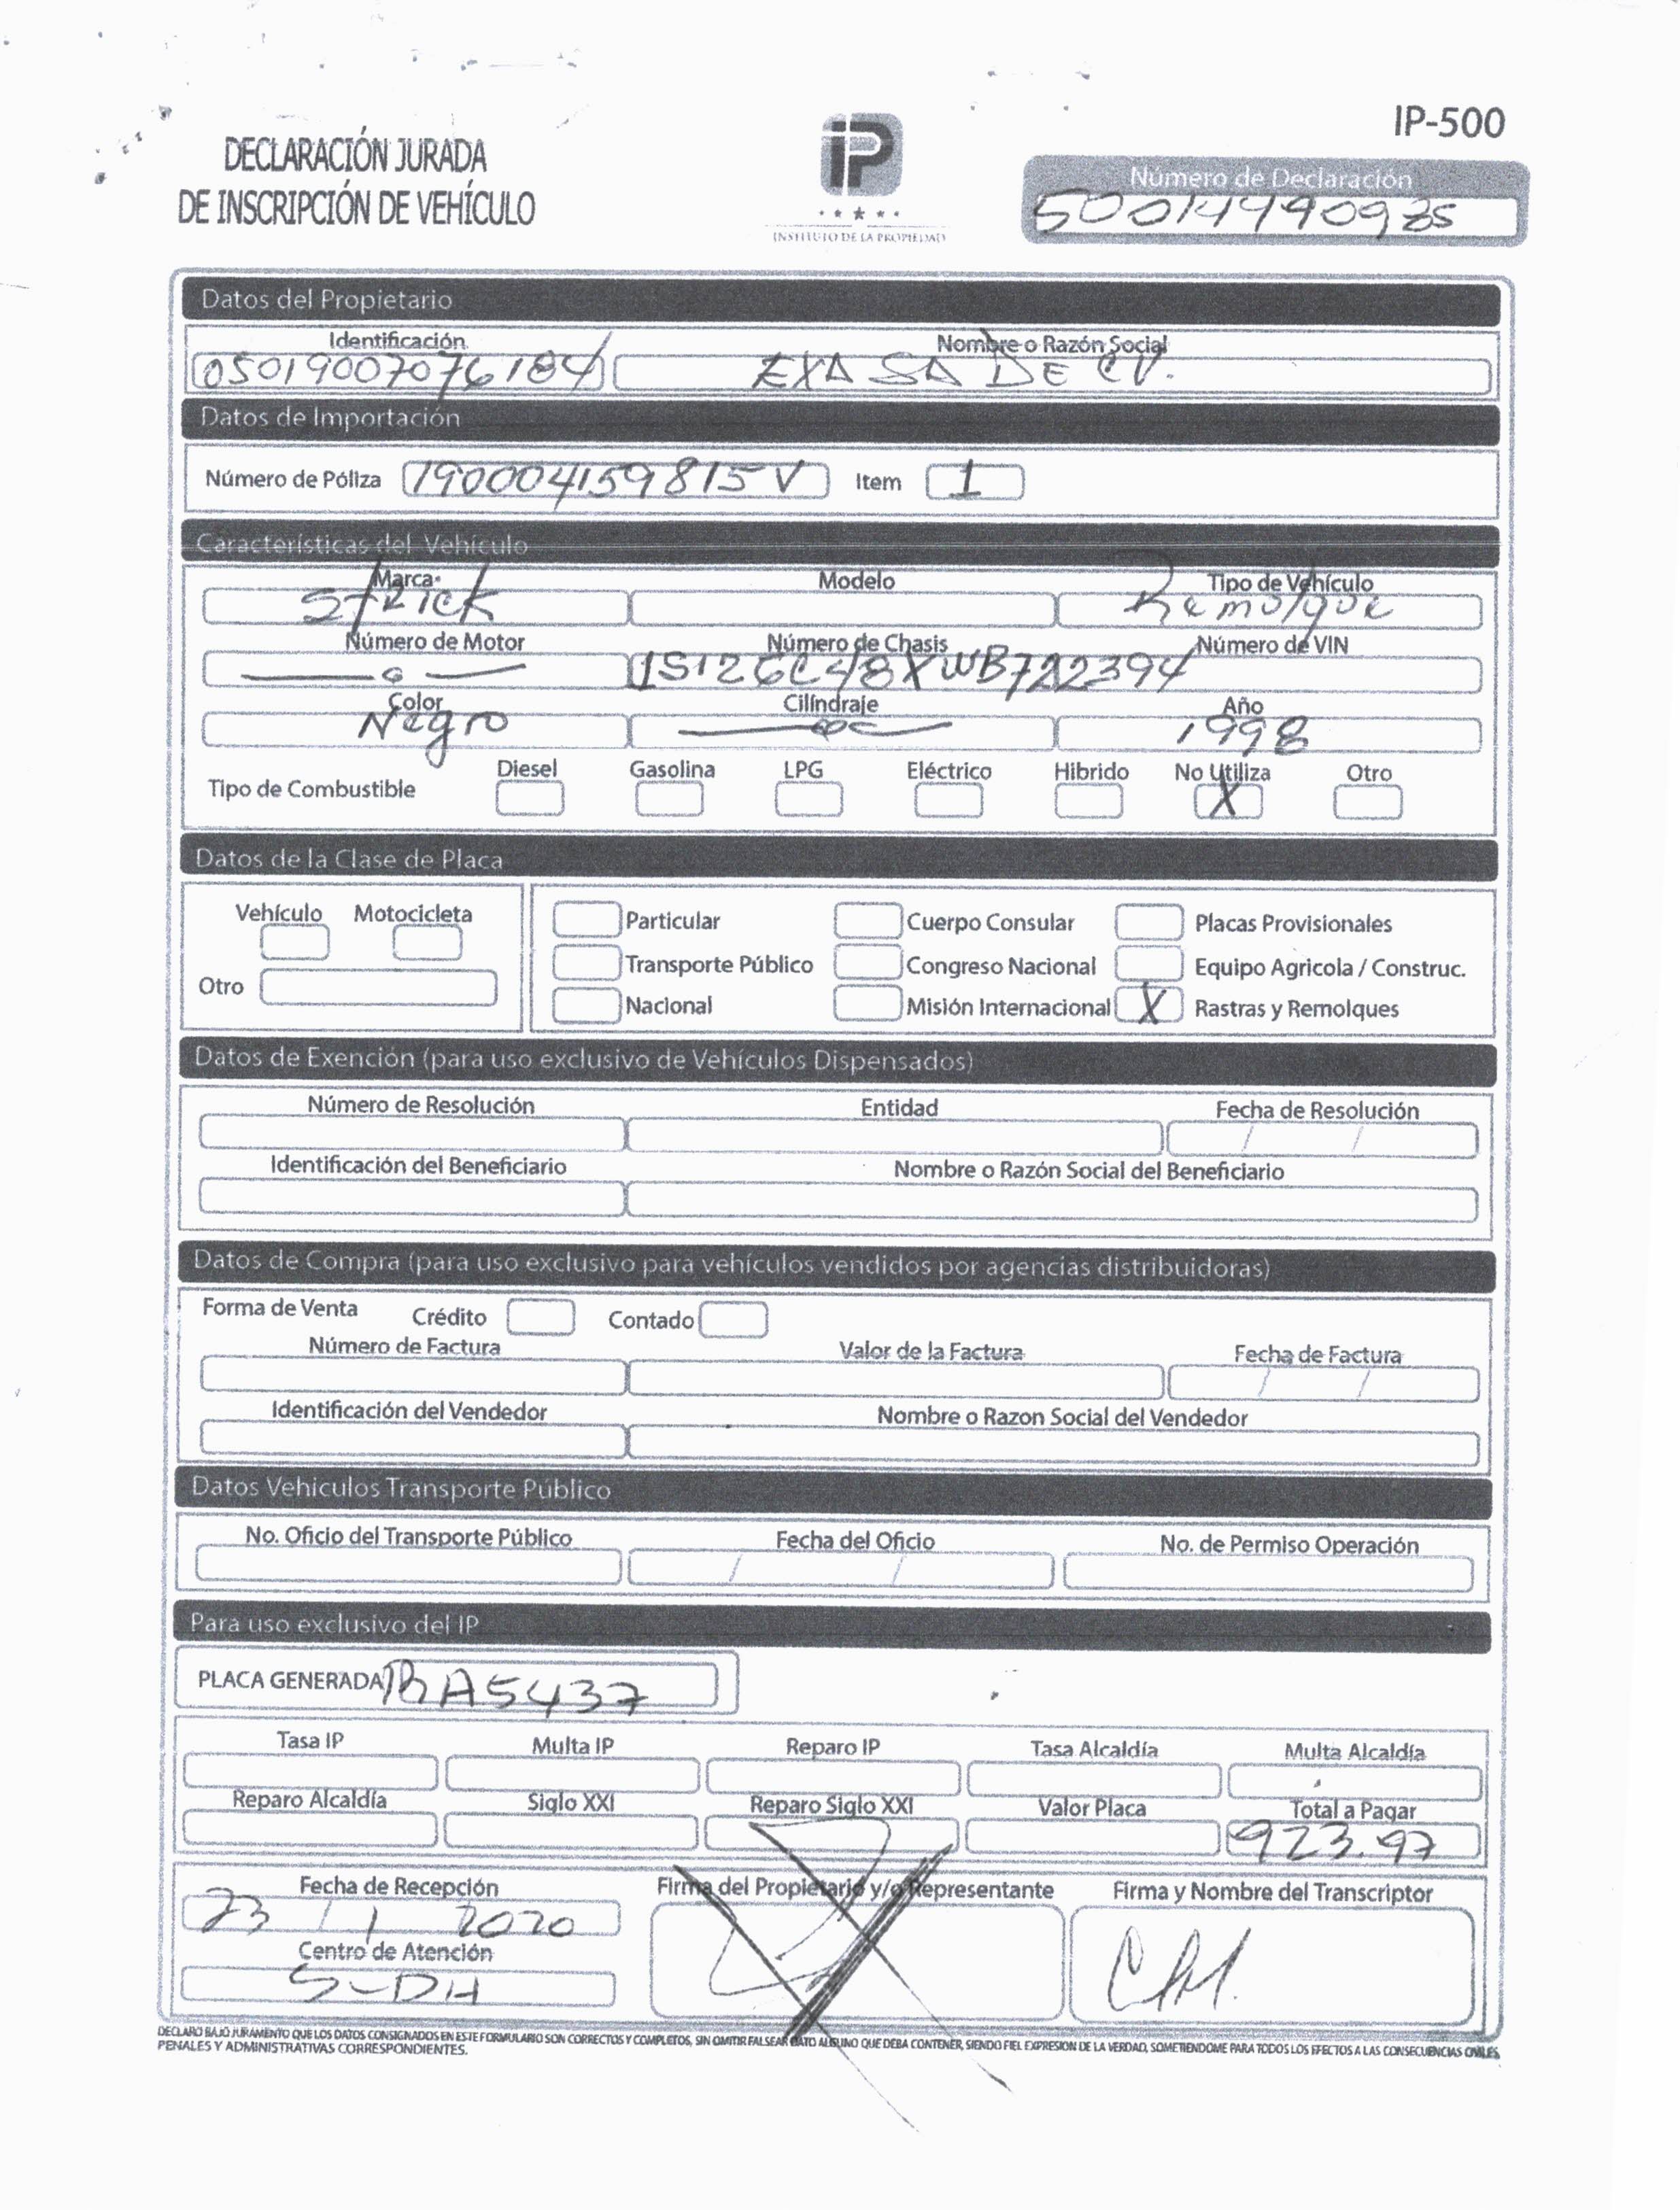 IP-500
DECLARACIÓN JURADA
DE INSCRIPCIÓN DE VEHÍCULO
iP
INSTITUTO DE LA PROPIEDAD
Número de Declaración
Datos del Propietario
Identificación Nombre o Razón Social
05019007076184 EXA SA DE CV.
Datos de Importación
Número de Póliza 190004159815V Item 1
Características del Vehículo
Marca Modelo Tipo de Vehículo
Strick Remolque
Número de Motor Número de Chasis Número de VIN
1S12GC48XWB722394
Color Cilíndraje Año
Negro 1998
Tipo de Combustible Diesel Gasolina LPG Eléctrico Hibrido No Utiliza Otro
X
Datos de la Clase de Placa
Vehículo Motocicleta Particular Cuerpo Consular Placas Provisionales
Transporte Público Congreso Nacional Equipo Agricola / Construc.
Otro Nacional Misión Internacional X Rastras y Remolques
Datos de Exención (para uso exclusivo de Vehículos Dispensados)
Número de Resolución Entidad Fecha de Resolución
/ /
Identificación del Beneficiario Nombre o Razón Social del Beneficiario
Datos de Compra (para uso exclusivo para vehículos vendidos por agencias distribuidoras)
Forma de Venta Crédito Contado
Número de Factura Valor de la Factura Fecha de Factura
/ /
Identificación del Vendedor Nombre o Razon Social del Vendedor
Datos Vehículos Transporte Público
No. Oficio del Transporte Público Fecha del Oficio No. de Permiso Operación
/ /
Para uso exclusivo del IP
PLACA GENERADA RA5437
Tasa IP Multa IP Reparo IP Tasa Alcaldía Multa Alcaldía
Reparo Alcaldía Siglo XXI Reparo Siglo XXI Valor Placa Total a Pagar
923.97
Fecha de Recepción Firma del Propietario y/o Representante Firma y Nombre del Transcriptor
23 / 1 2020
Centro de Atención
DECLARO BAJO JURAMENTO QUE LOS DATOS CONSIGNADOS EN ESTE FORMULARIO SON CORRECTOS Y COMPLETOS, SIN OMITIR FALSEAR DATO ALGUNO QUE DEBA CONTENER, SIENDO FIEL EXPRESION DE LA VERDAD, SOMETIENDOME PARA TODOS LOS EFECTOS A LAS CONSECUENCIAS CIVILES
PENALES Y ADMINISTRATIVAS CORRESPONDIENTES.